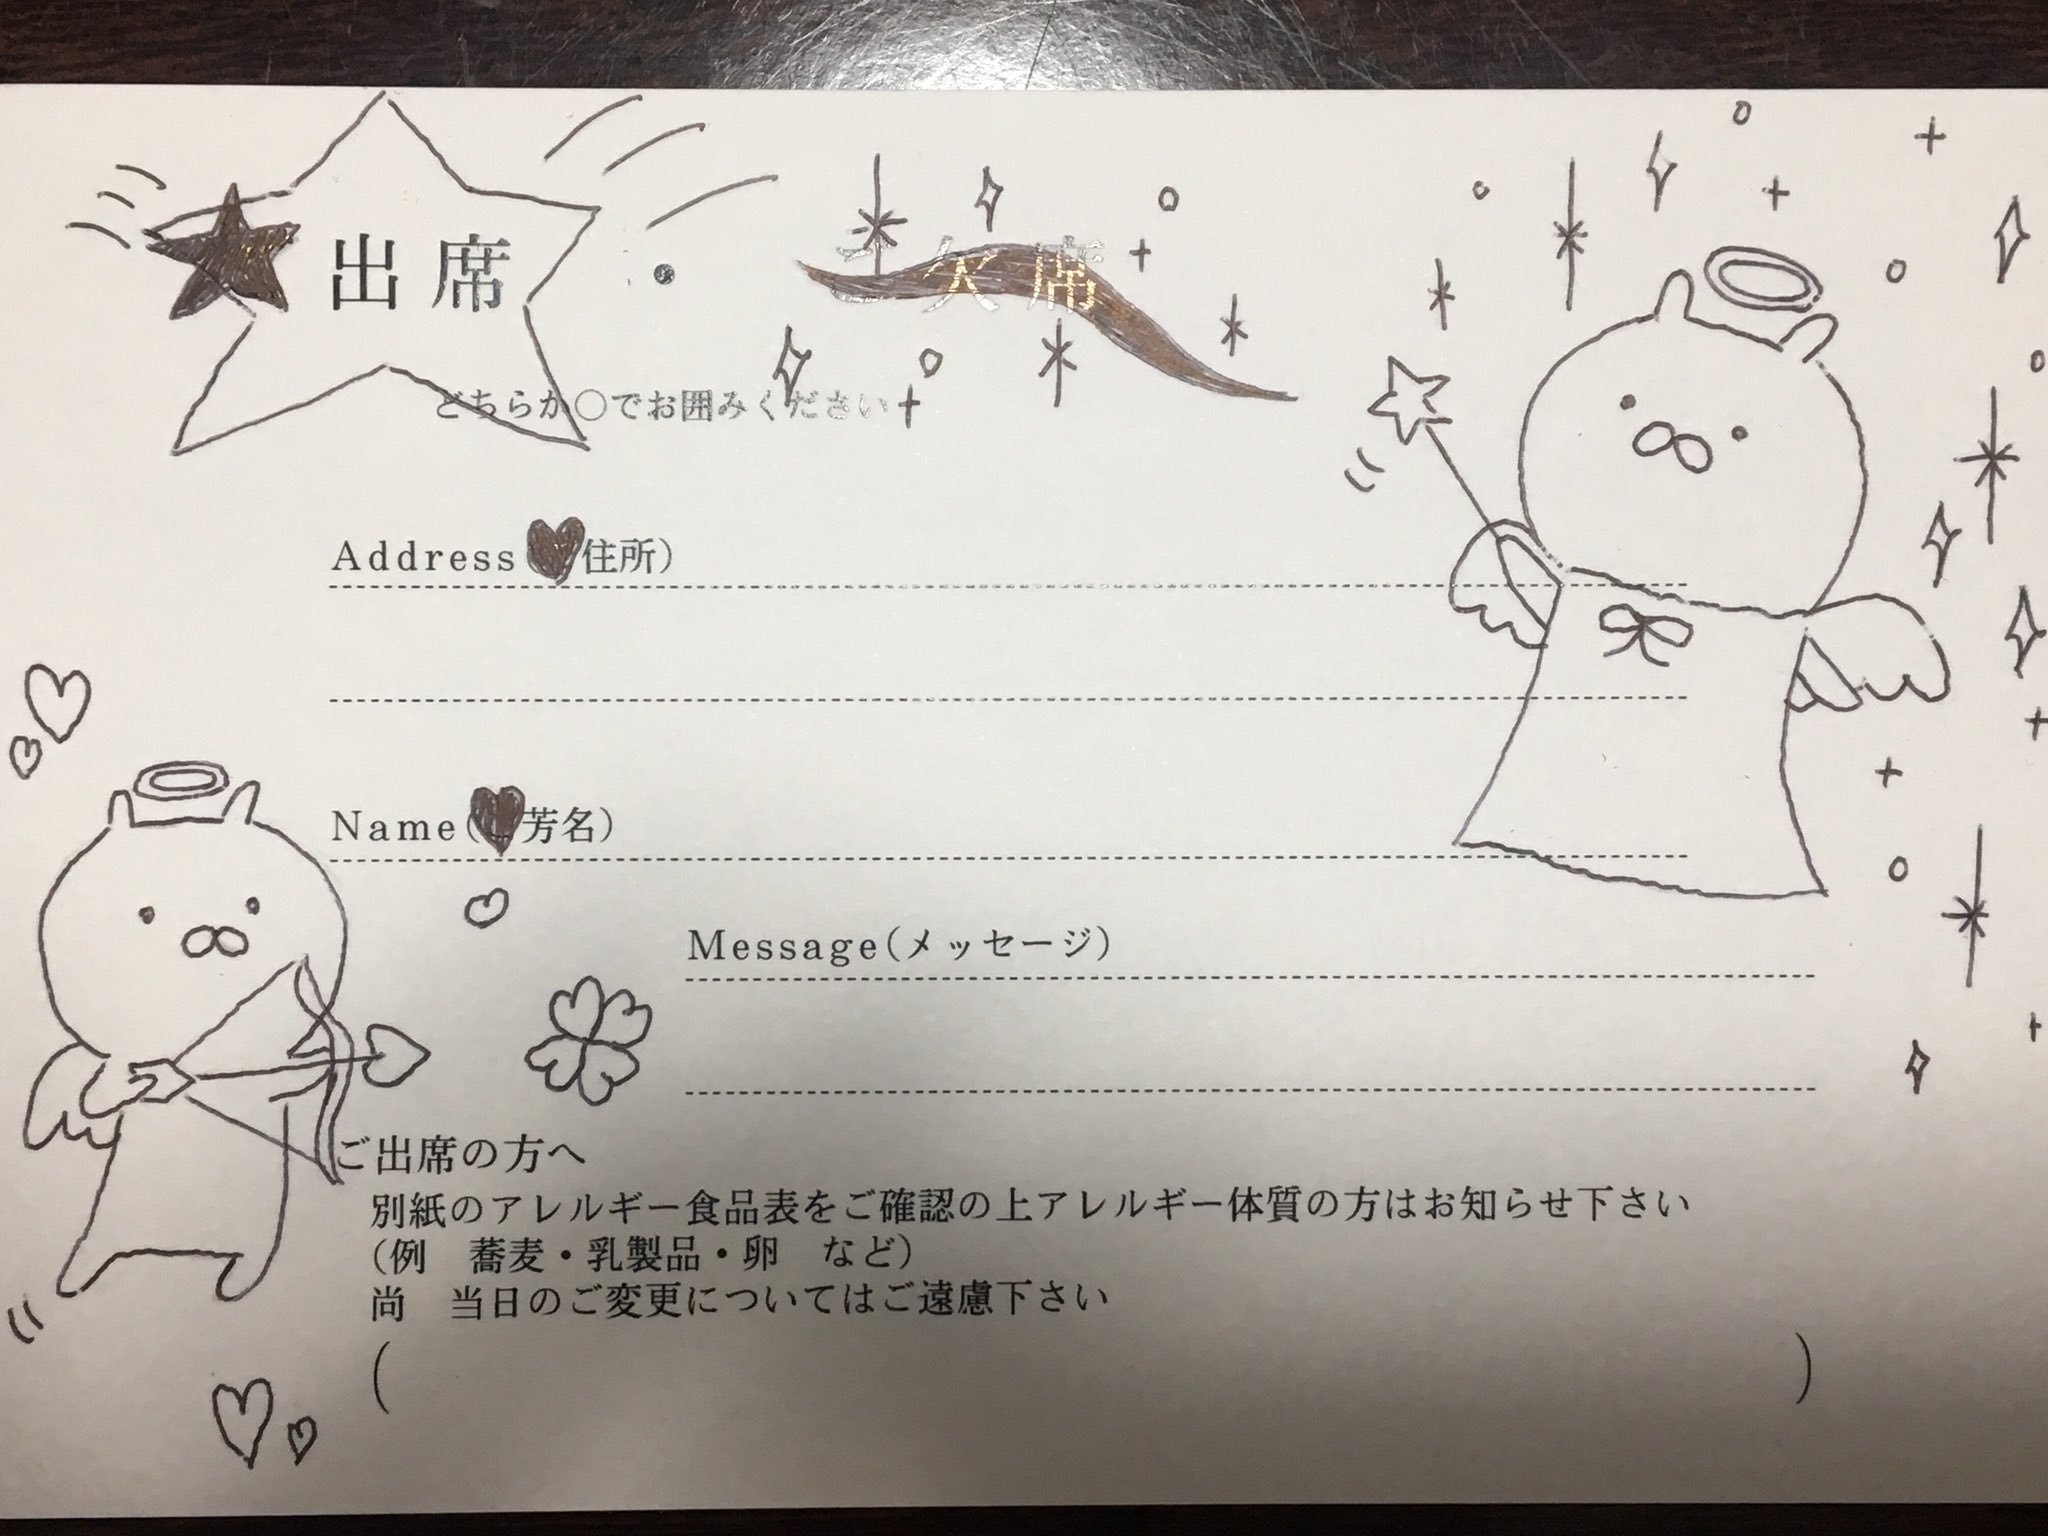 出席 ・ 欠席
どちらか○でお囲みください
Address 住所)
Name( 芳名)
Message(メッセージ)
ご出席の方へ
別紙のアレルギー食品表をご確認の上アレルギー体質の方はお知らせ下さい
(例　蕎麦・乳製品・卵　など)
尚　当日のご変更についてはご遠慮下さい
(　　　)